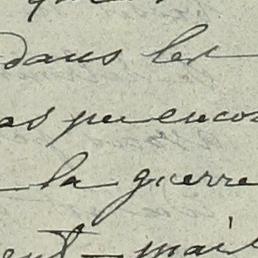 dans les
as pu encor
la guerre
ent – mais